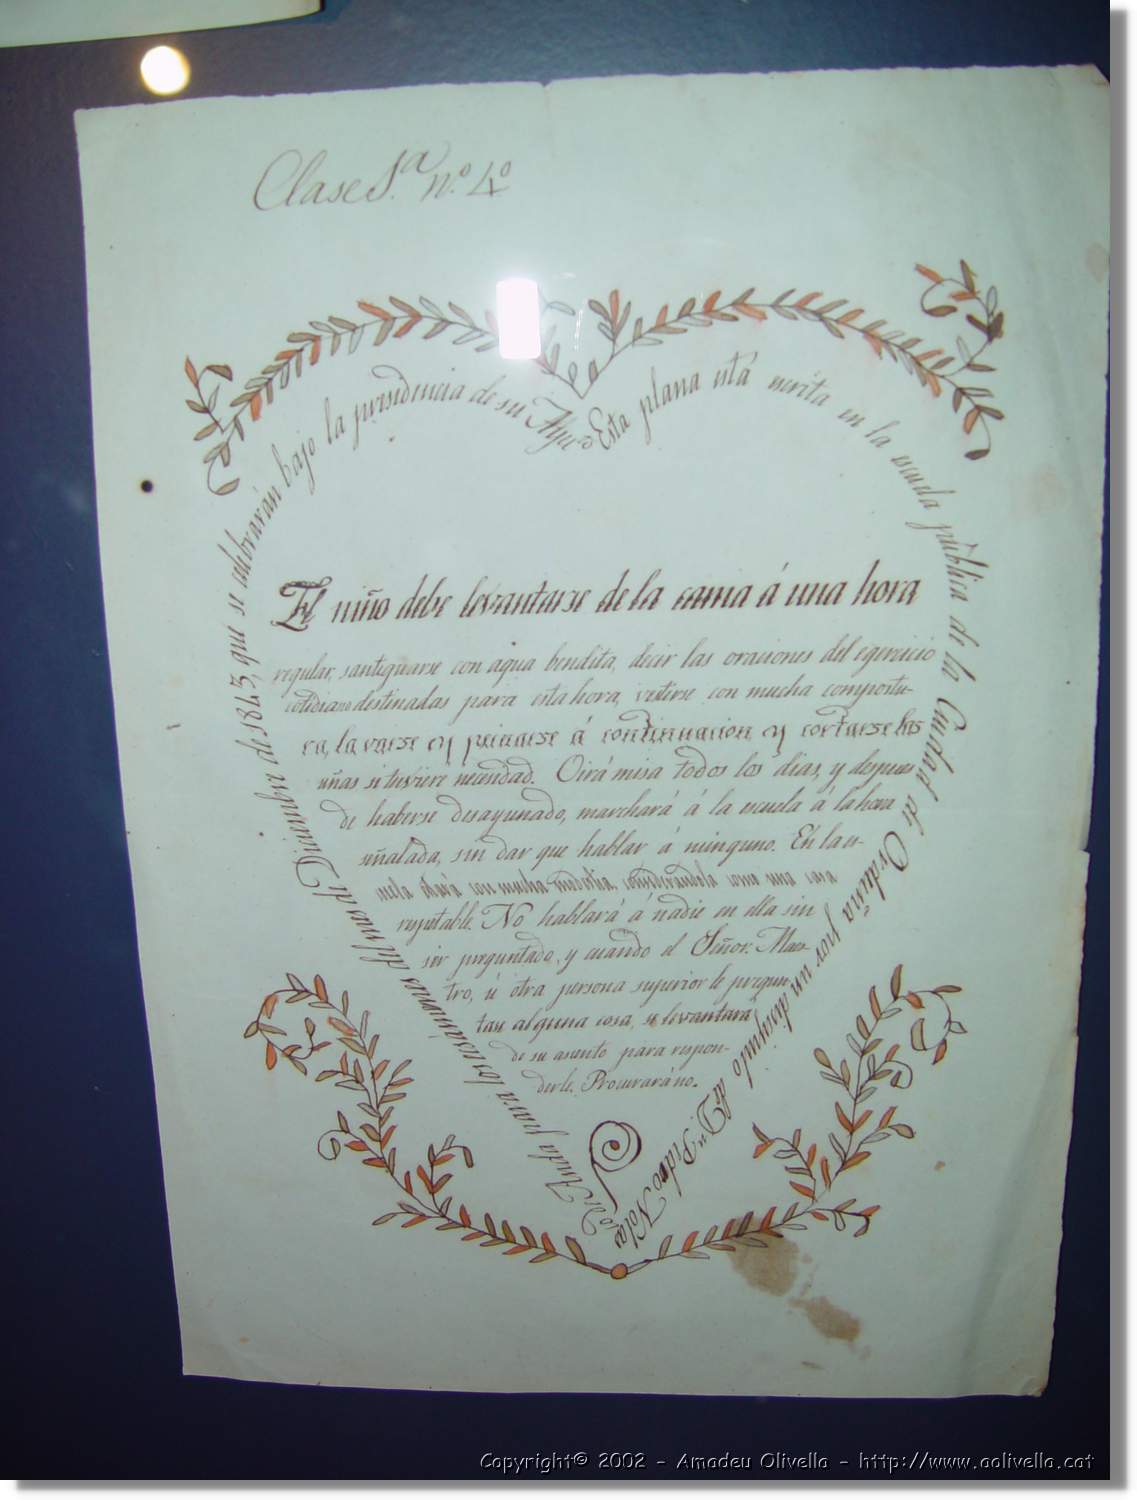 Clase 5.ª n.º 4º
Esta plana está escrita en la escuela pública de la Ciudad de Orduña por un discípulo de Dn. Pedro Nolas
co de Anda para los esámenes del mes de Diciembre de 1843, que se celebrarán bajo la persidencia de su Ayu.º
El niño debe levantarse de la cama á una hora
regular, santiguarse con agua bendita, decir las oraciones del egercicio
cotidiano destinadas para esta hora, vestirse con mucha compostu-
ra, lavarse y peinarse á continuacion y cortarse las
uñas si tuviere necesidad. Oirá misa todos los dias, y despues
de haberse desayunado, marchará á la escuela á la hora
señalada, sin dar que hablar á ninguno. En la es-
cuela estará con mucha modestia, considerandola como una casa
respetable. No hablará á nadie en ella sin
ser preguntado, y cuando el Señor. Maes-
tro, ú otra persona superior le pregun
tase alguna cosa, se levantará
de su asiento para respon-
derle. Procurará no.
Copyright© 2002 - Amadeu Olivella - http://www.aolivella.cat